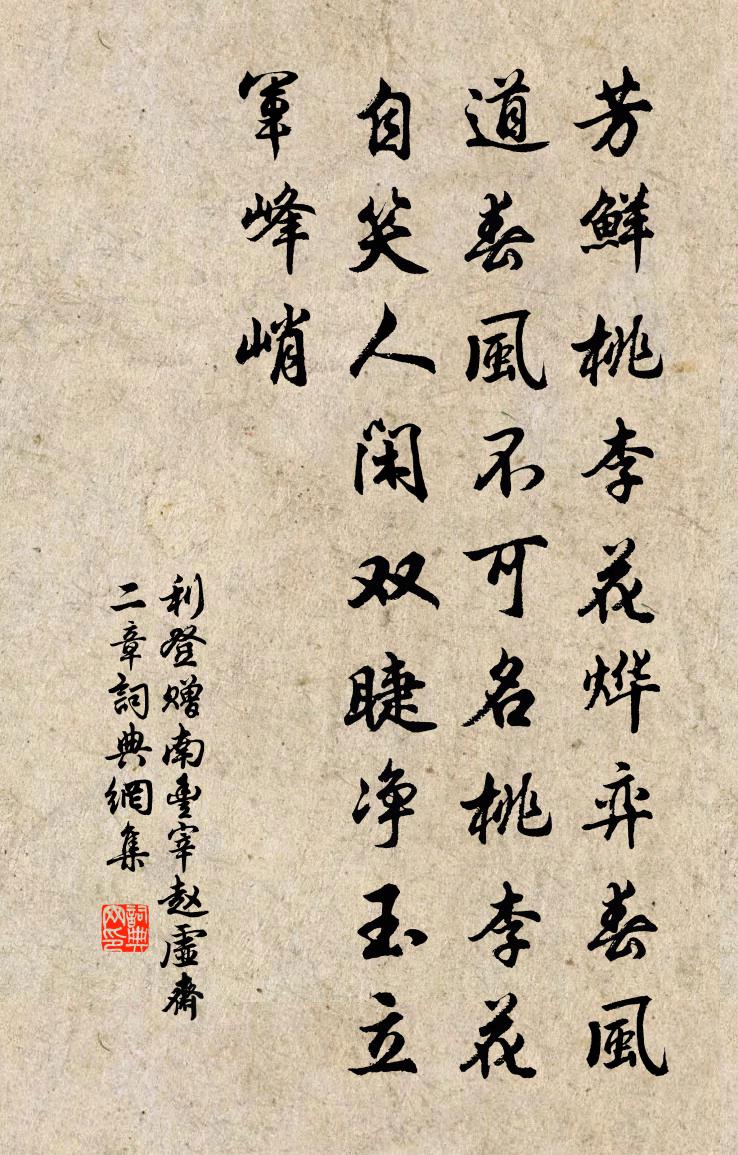 芳鮮桃李花烨弈春風
道春風不可名桃李花
自笑人闲双睫净玉立
军峰峭
利登赠南豊宰赵虚齋
二章詞典網集
詞典网印